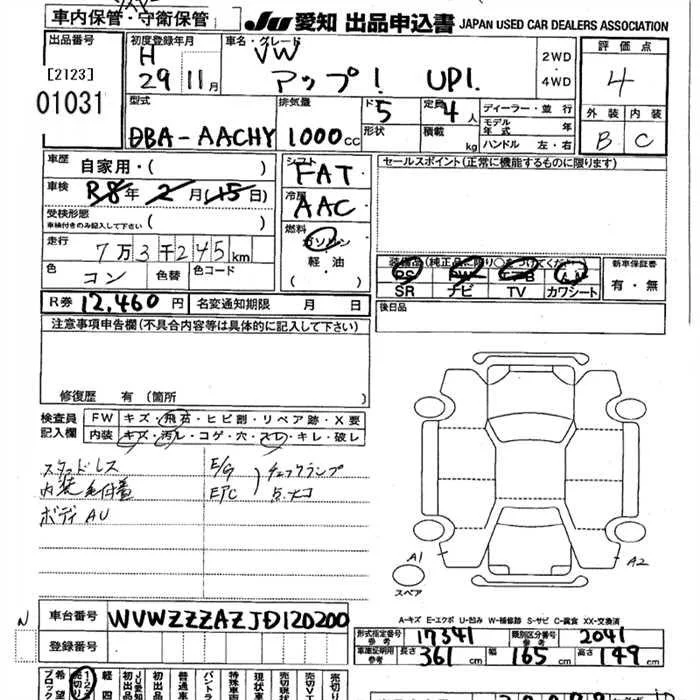 車内保管・守衛保管
JU愛知 出品申込書 JAPAN USED CAR DEALERS ASSOCIATION
出品番号
[2123]
01031
初度登録年月
H
29年11月
車名・グレード
VW
アップ! UP!.
2WD
4WD
評価点
4
外装 内装
B C
型式
DBA-AACHY
排気量
1000cc
ドア
5
形状
定員
4人
積載
kg
ディーラー・並行
モデル年式 年
ハンドル 左・右
車歴
自家用・( )
車検
R8年2月(15日)
受検形態
車検付きのみ記入して下さい ( )
走行
7万3千245km
色
コン
色替
色コード
シフト
FAT
冷房
AAC
燃料
ガソリン
軽・油
( )
セールスポイント(正常に機能するものに限ります)
装備品(純正品に限り○をつけてください)
PS PW エアB AW
SR ナビ TV カワシート
新車保証書
有・無
R券 12,460円
名変通知期限 月 日
後日品
注意事項申告欄(不具合内容等は具体的に記入して下さい)
修復歴 有 (箇所 )
検査員
記入欄
FW キズ・飛石・ヒビ割・リペア跡・X要
内装 キズ・汚レ・コゲ・穴・スレ・キレ・破レ
スタッドレス
内装毛付着
ボディAU
E/G
EPC
チェックランプ
点灯
A1
A2
スペア
A-キズ E-エクボ U-凹み W-補修跡 S-サビ C-腐食 XX-交換済
N
車台番号 WVWZZZAZJD120200
登録番号
形式指定番号
参考
17341
類別区分番号
参考
2041
車庫証明用
参考
長さ 361cm
幅 165cm
高さ 149cm